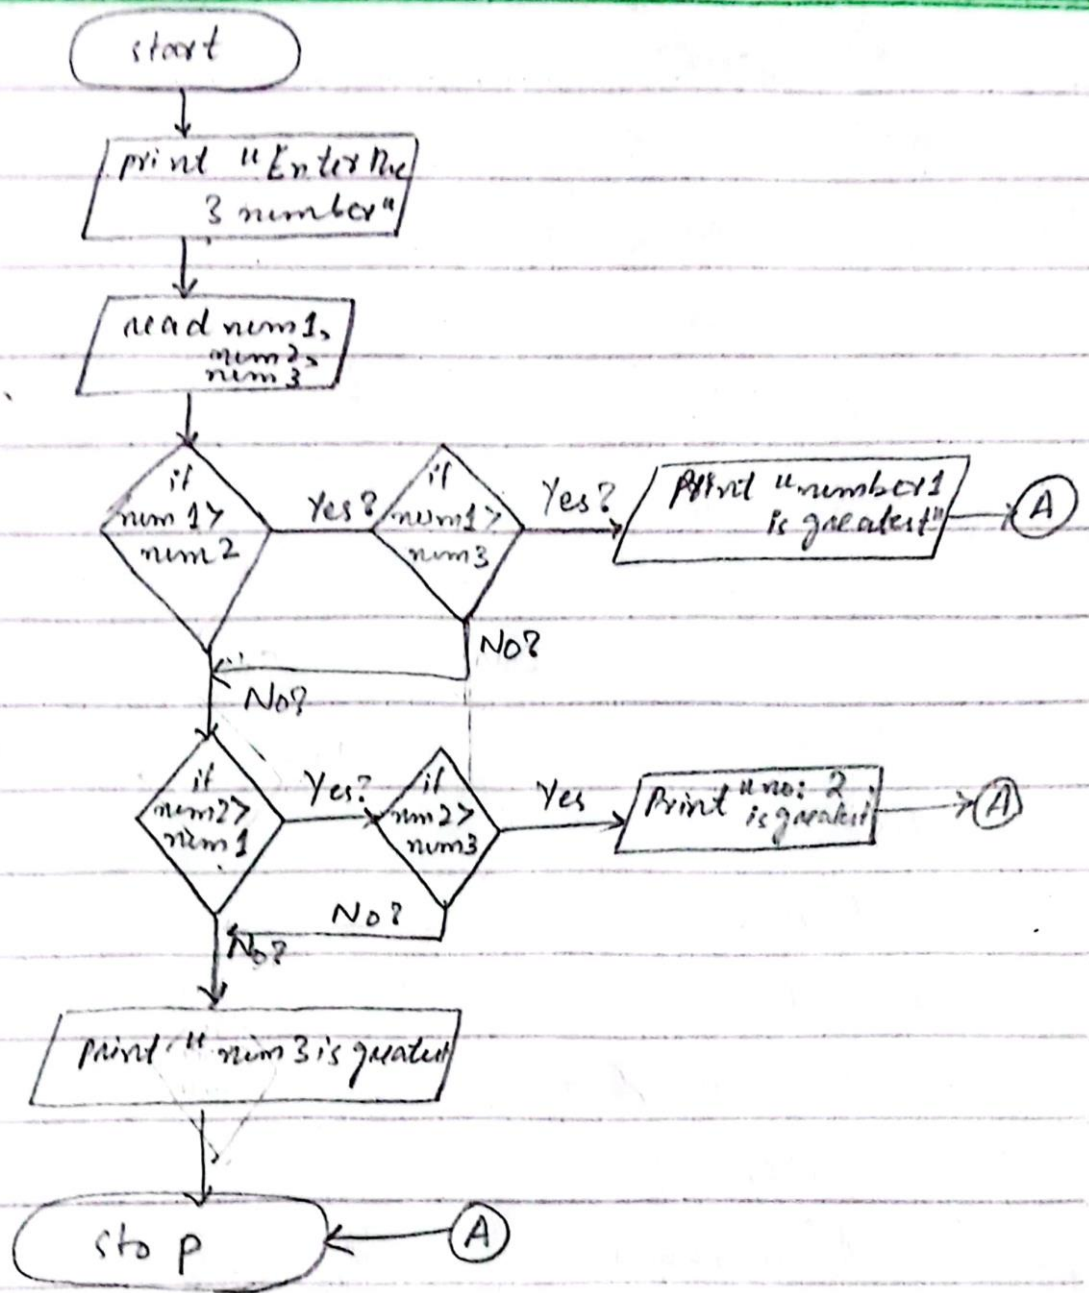 start
print "Enter the
3 number"
read num1,
num2,
num3
if
num 1>
num 2
Yes?
if
num1>
num3
Yes?
Print "number1
is greatest"
A
No?
No?
if
num2>
num1
Yes?
if
num2>
num3
Yes
Print "no: 2
is greatest
A
No?
No?
print "num3 is greatest
stop
A